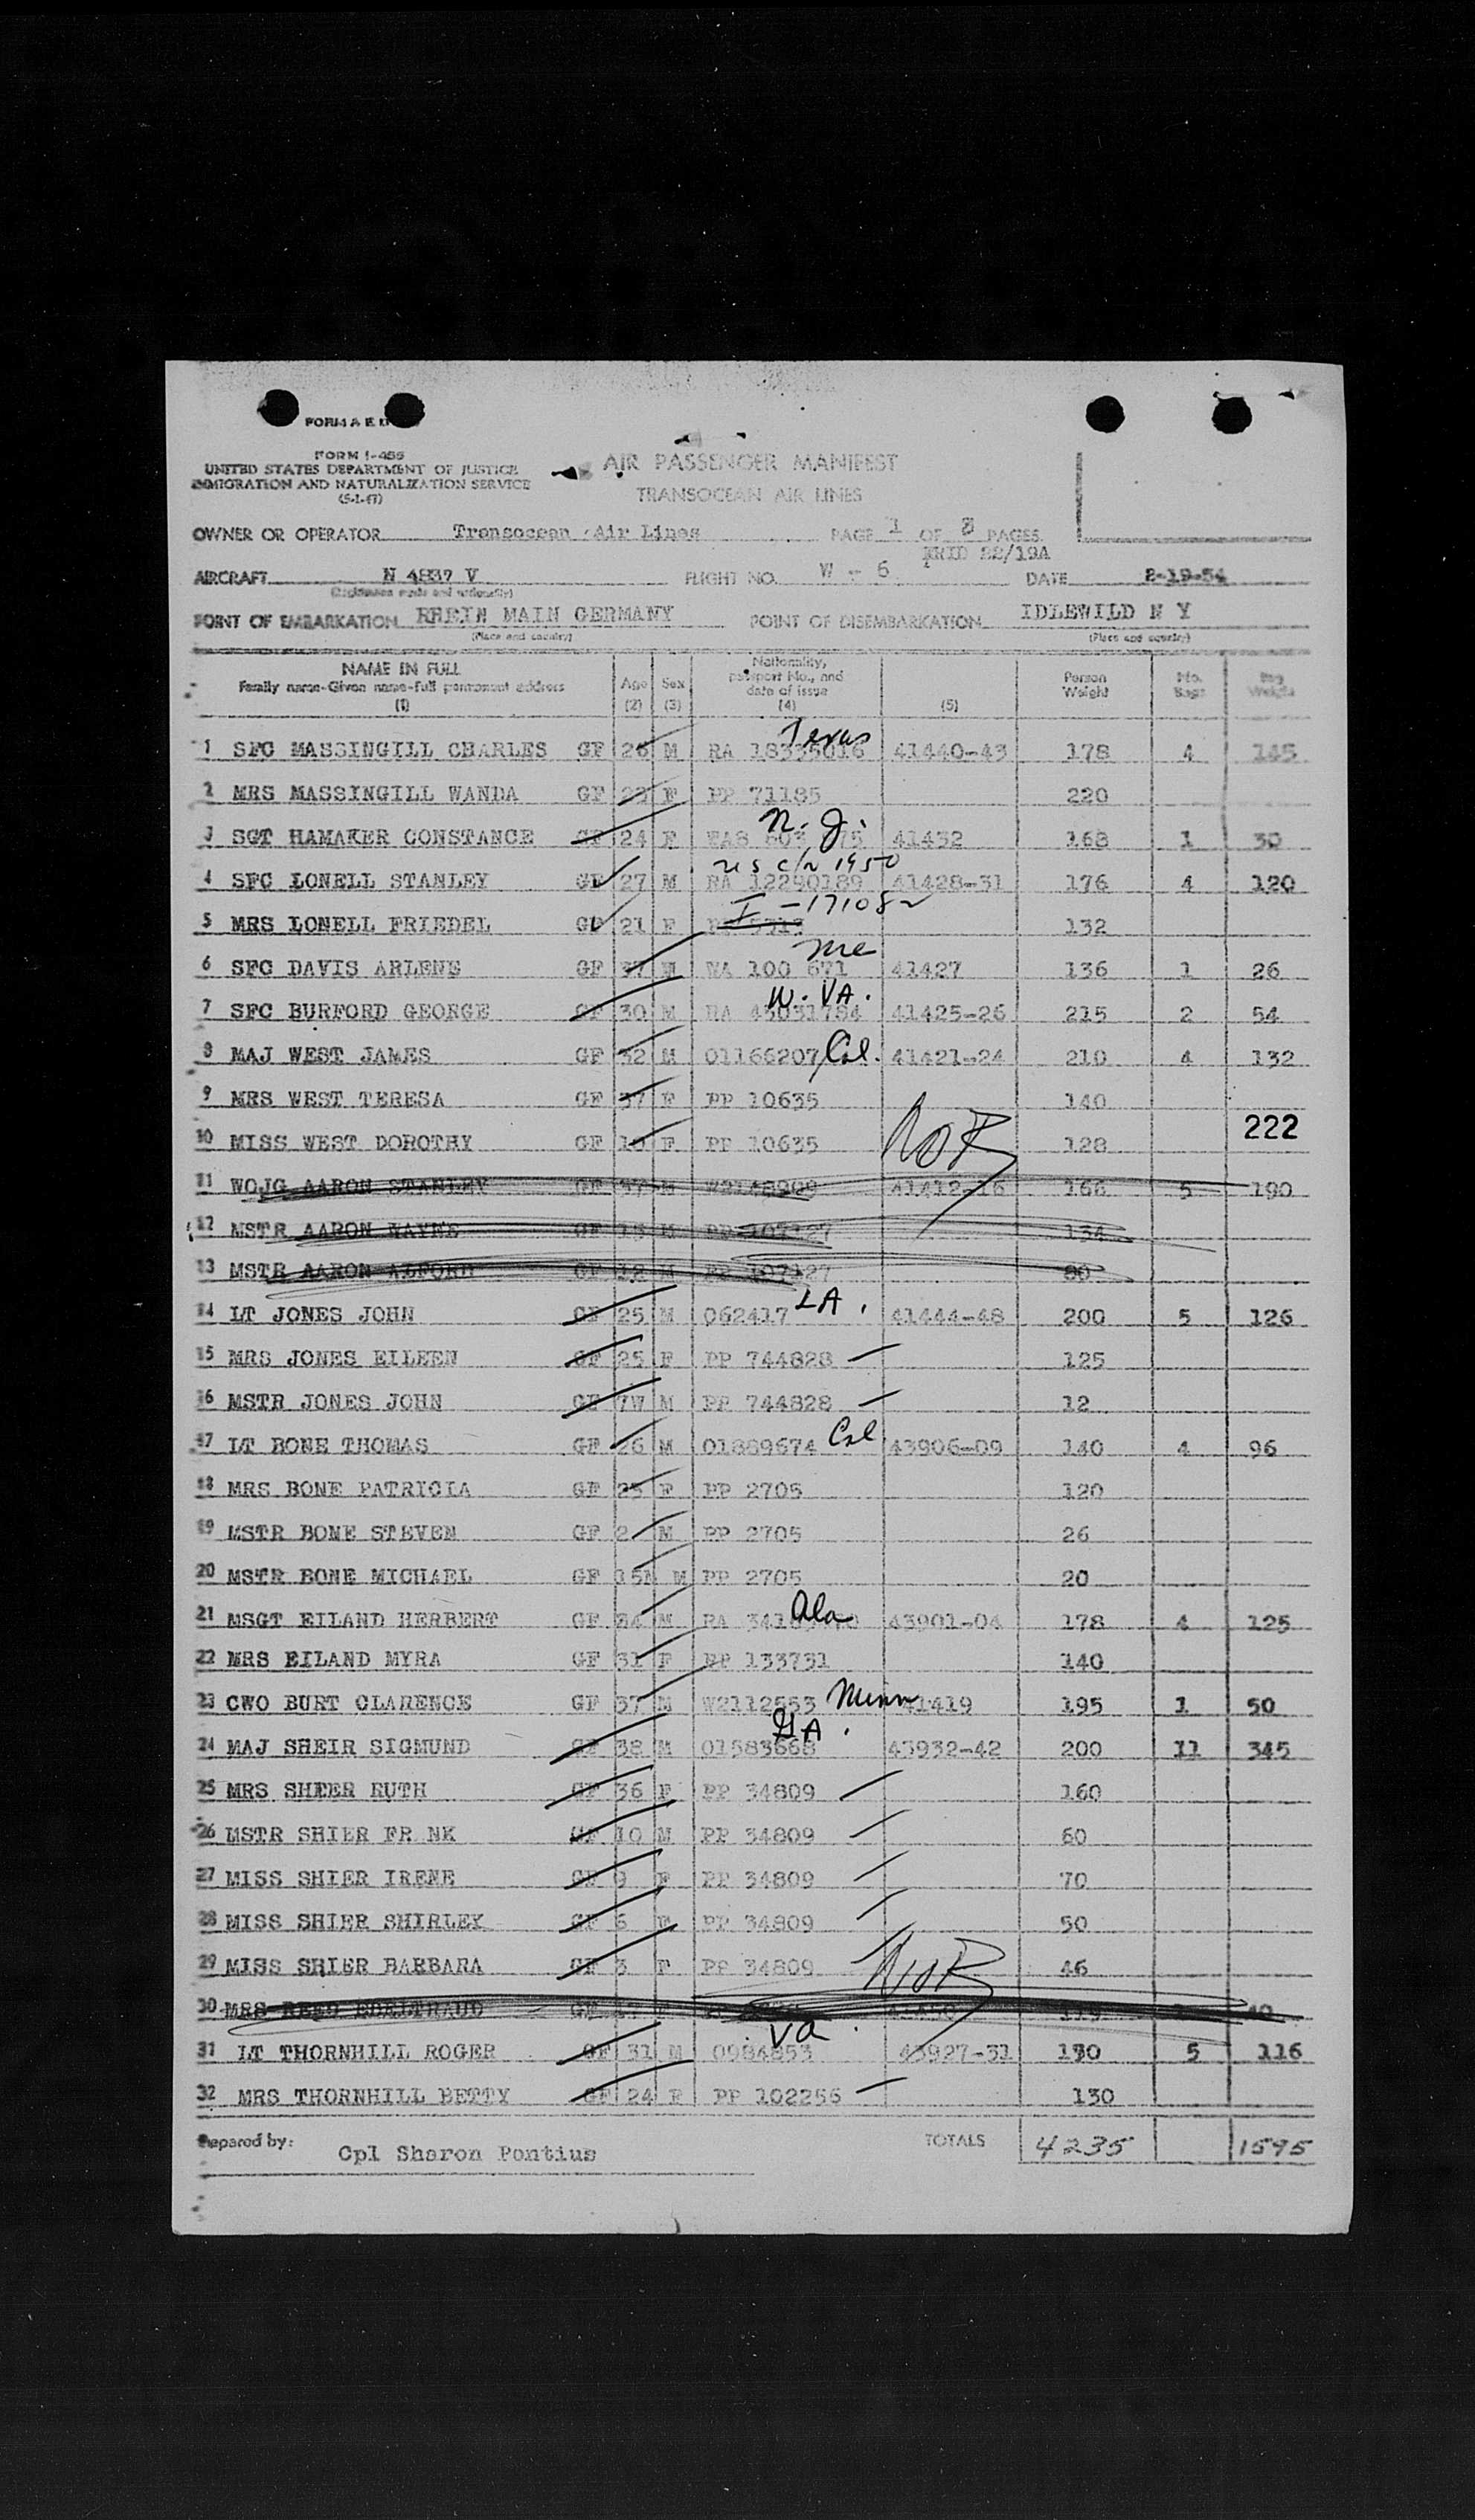 FORM I-466
UNITED STATES DEPARTMENT OF JUSTICE
IMMIGRATION AND NATURALIZATION SERVICE
AIR PASSENGER MANIFEST
TRANSOCEAN AIR LINES
OWNER OR OPERATOR Transocean Air Lines PAGE 1 OF PAGES
22/19A
AIRCRAFT N 4837 V FLIGHT NO. W - 6 DATE 2-19-54
POINT OF EMBARKATION RHEIN MAIN GERMANY POINT OF DISEMBARKATION IDLEWILD N Y
(Place and country) (Place and country)
NAME IN FULL Family name-Given name-full permanent address (1) Age (2) Sex (3) Nationality, passport No., and date of issue (4) (5) Person Weight No. Bags Bag Weight
Texas
1 SFC MASSINGILL CHARLES GF 26 M RA 18335016 41440-43 178 4 145
2 MRS MASSINGILL WANDA GF 23 F PP 71185 220
N. J.
3 SGT HAMAKER CONSTANCE GF 24 F 41432 168 1 30
US c/n 1950
4 SFC LONELL STANLEY GF 27 M RA 12290189 41428-31 176 4 120
5 MRS LONELL FRIEDEL GF 21 F 132
Me
6 SFC DAVIS ARLENE GF 37 M WA 100 671 41427 136 1 26
W. VA.
7 SFC BURFORD GEORGE GF 30 M RA 45031784 41425-26 215 2 54
8 MAJ WEST JAMES GF 32 M 01166207 Cal. 41421-24 210 4 132
9 MRS WEST TERESA GF 37 F PP 10635 140
222
10 MISS WEST DOROTHY GF 10 F PP 10635 128
11 WOJG AARON STANLEY GF 37 M W2148909 166 5 190
12 MSTR AARON WAYNE GF 15 M PP 107127 134
13 MSTR AARON ALFORD GF 12 M PP 107127 80
14 LT JONES JOHN GF 25 M 062417 LA. 41444-48 200 5 126
15 MRS JONES EILEEN GF 25 F PP 744828 125
16 MSTR JONES JOHN GF 7W M PP 744828 12
17 LT BONE THOMAS GF 26 M 01889674 Cal 43906-09 140 4 96
18 MRS BONE PATRICIA GF 25 F PP 2705 120
19 MSTR BONE STEVEN GF 2 M PP 2705 26
20 MSTR BONE MICHAEL GF 15M M PP 2705 20
Ala
21 MSGT EILAND HERBERT GF 34 M RA 43901-04 178 4 125
22 MRS EILAND MYRA GF 31 F PP 133731 140
23 CWO BURT CLARENCE GF 37 M W2112553 Minn 41419 195 1 50
GA.
24 MAJ SHEIR SIGMUND GF 38 M 01583668 43932-42 200 11 345
25 MRS SHEER RUTH GF 36 F PP 34809 160
26 MSTR SHIER FR NK GF 10 M PP 34809 60
27 MISS SHIER IRENE GF 9 F PP 34809 70
28 MISS SHIER SHIRLEY GF 6 F PP 34809 50
29 MISS SHIER BARBARA GF 3 F PP 34809 46
30 MRS REED EDELTRAUD GF
Va.
31 LT THORNHILL ROGER GF 31 M 0984853 43927-31 130 5 116
32 MRS THORNHILL BETTY GF 24 F PP 102256 130
Prepared by: Cpl Sharon Pontius TOTALS 4235 1595